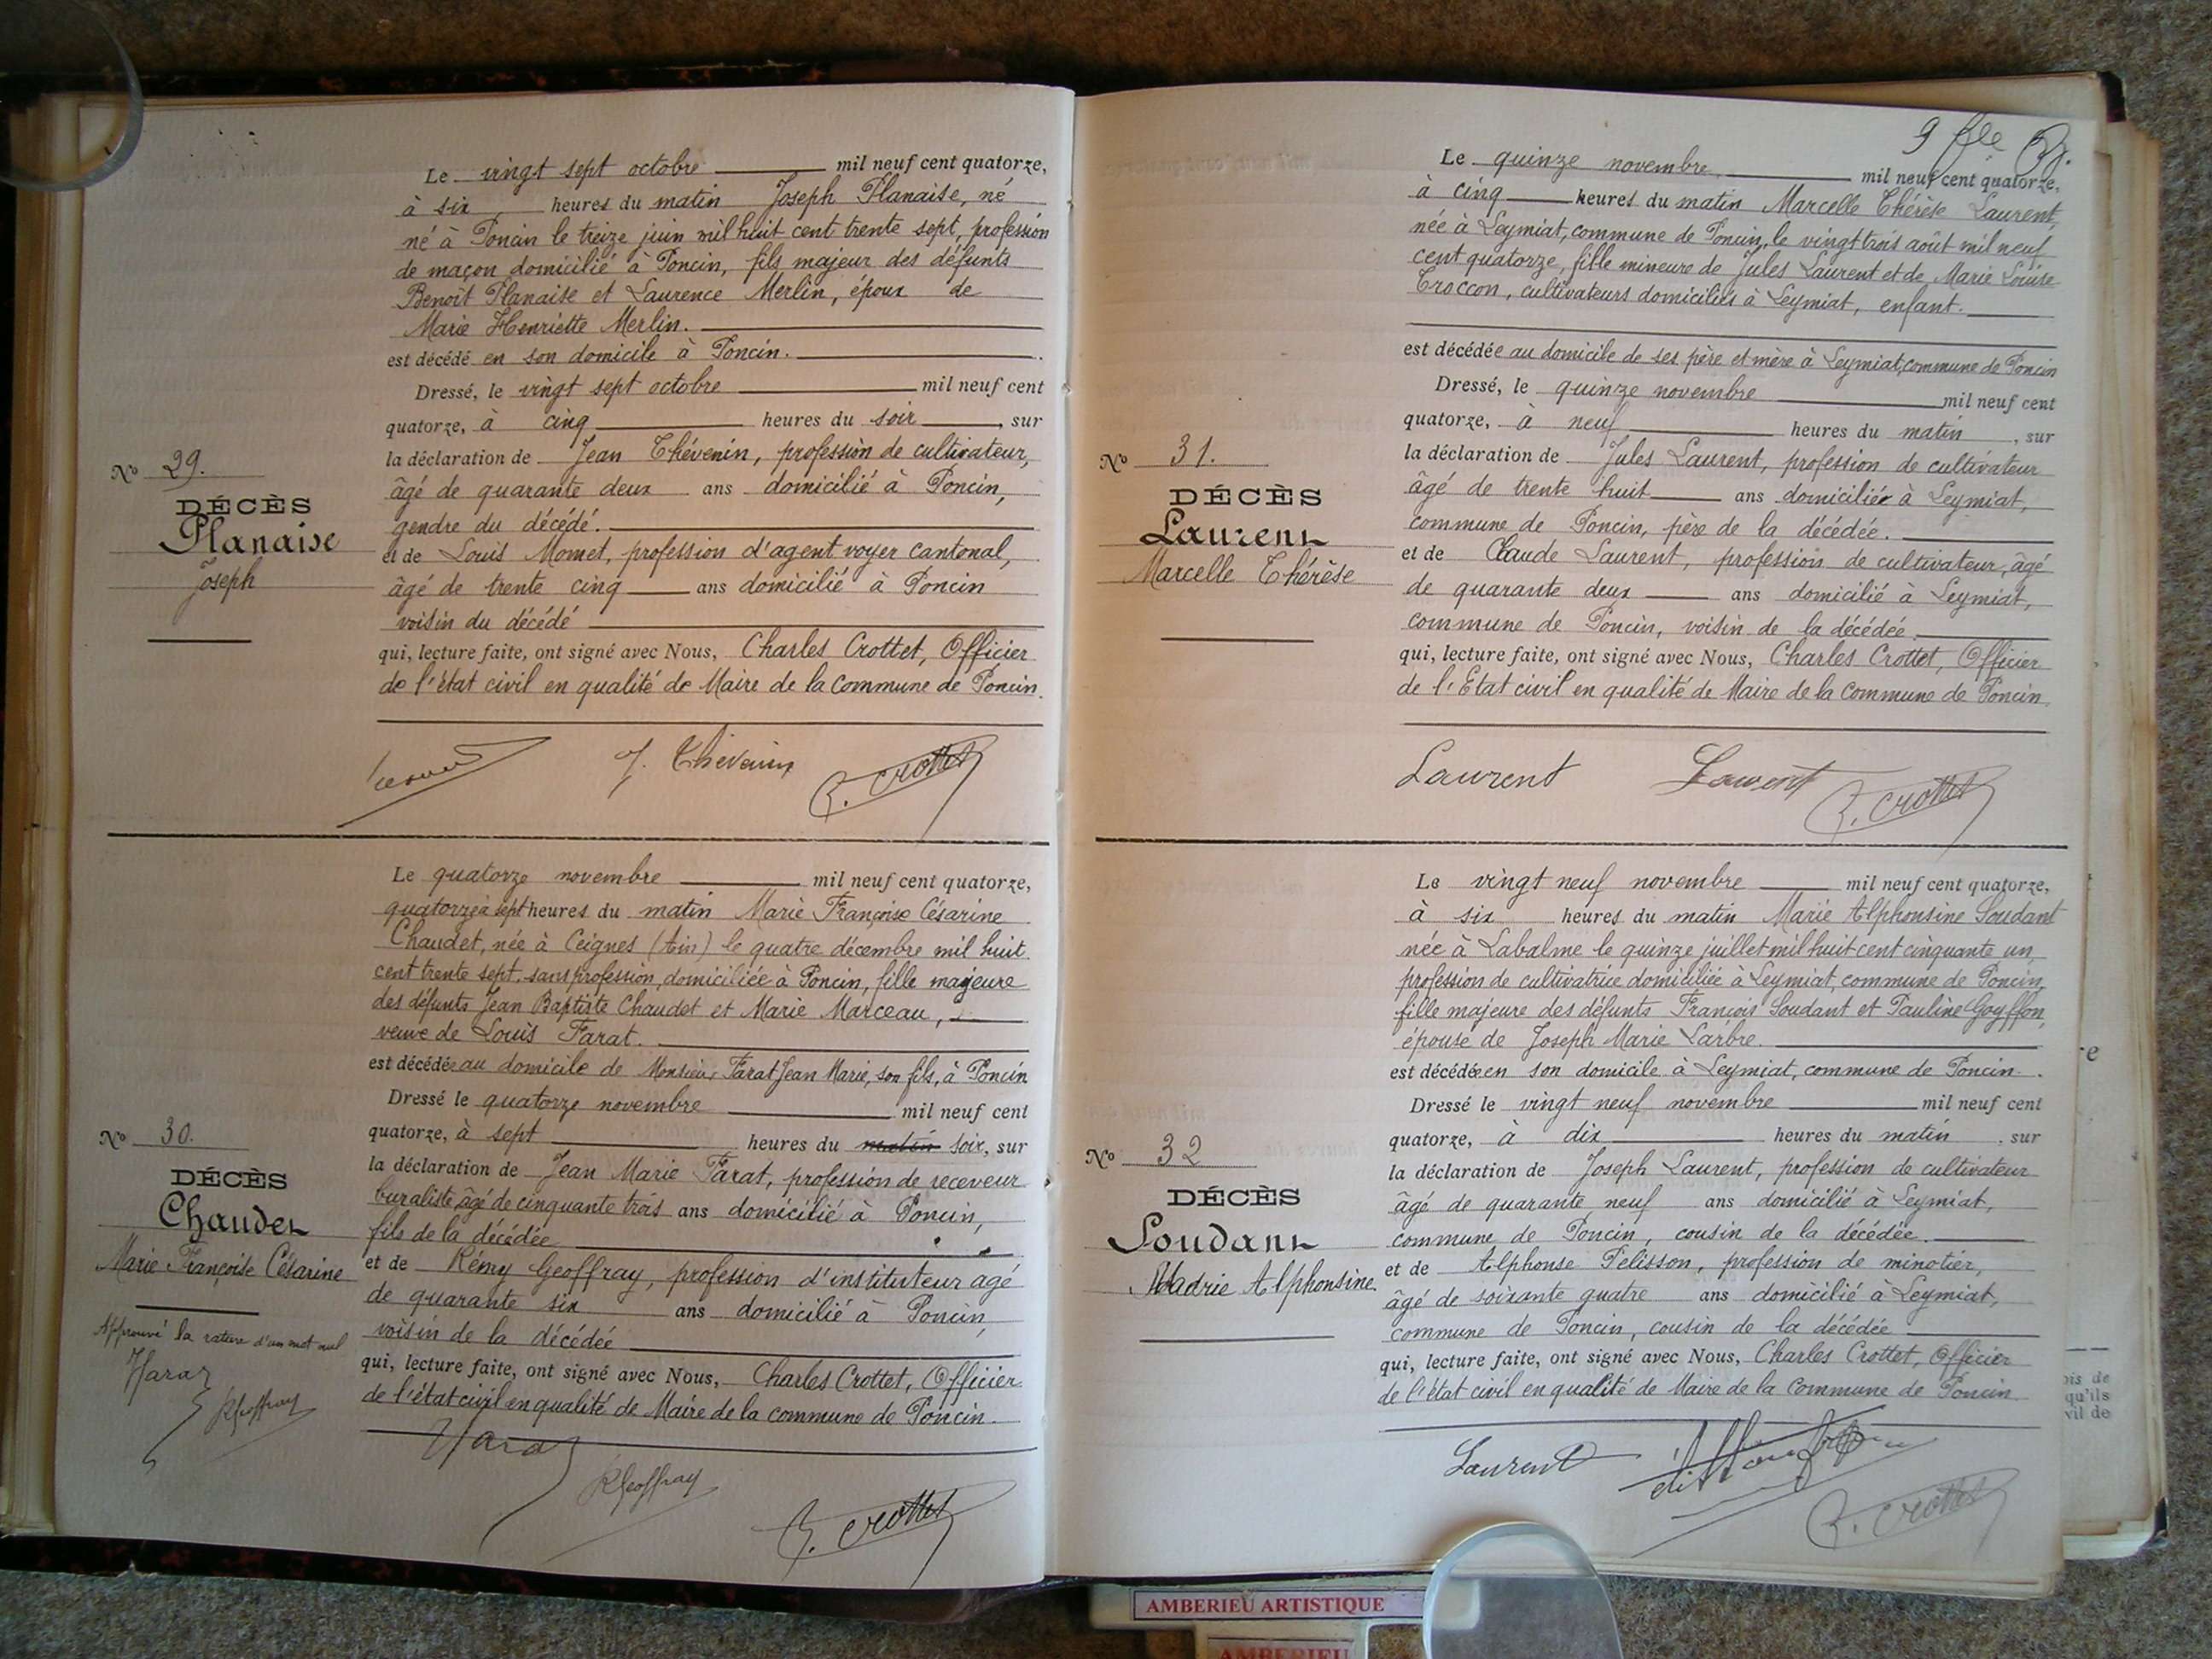 Le vingt sept octobre mil neuf cent quatorze,
à six heures du matin Joseph Planaise, né
né à Poncin le treize juin mil huit cent trente sept, profession
de maçon domicilié à Poncin, fils majeur des défunts
Benoît Planaise et Laurence Merlin, époux de
Marie Henriette Merlin.
est décédé en son domicile à Poncin.
Dressé, le vingt sept octobre mil neuf cent
quatorze, à cinq heures du soir, sur
la déclaration de Jean Thévenin, profession de cultivateur,
âgé de quarante deux ans domicilié à Poncin,
gendre du décédé.
et de Louis Momet, profession d'agent voyer cantonal,
âgé de trente cinq ans domicilié à Poncin
voisin du décédé
qui, lecture faite, ont signé avec Nous, Charles Crottet, Officier
de l'état civil en qualité de Maire de la Commune de Poncin.
No 29.
DÉCÈS
Planaise
Joseph
J. Thévenin C. Crottet
Le quatorze novembre mil neuf cent quatorze,
quatorze à sept heures du matin Marie Françoise Césarine
Chaudet, née à Ceignes (Ain) le quatre décembre mil huit
cent trente sept, sans profession, domiciliée à Poncin, fille majeure
des défunts Jean Baptiste Chaudet et Marie Marceau,
veuve de Louis Farat.
est décédée au domicile de Monsieur Farat Jean Marie, son fils, à Poncin
Dressé le quatorze novembre mil neuf cent
quatorze, à sept heures du matin soir, sur
la déclaration de Jean Marie Farat, profession de receveur
buraliste âgé de cinquante trois ans domicilié à Poncin,
fils de la décédée
et de Rémy Geoffray, profession d'instituteur agé
de quarante six ans domicilié à Poncin,
voisin de la décédée
qui, lecture faite, ont signé avec Nous, Charles Crottet, Officier
de l'état civil en qualité de Maire de la commune de Poncin.
No 30.
DÉCÈS
Chaudet
Marie Françoise Césarine
Approuvé la rature d'un mot nul
Farat
RGeoffray
Farat
RGeoffray
C. Crottet
9 fle
Le quinze novembre mil neuf cent quatorze,
à cinq heures du matin Marcelle Thérèse Laurent,
née à Leymiat, commune de Poncin, le vingt trois août mil neuf
cent quatorze, fille mineure de Jules Laurent et de Marie Louise
Troccon, cultivateurs domiciliés à Leymiat, enfant.
est décédée au domicile de ses père et mère à Leymiat, commune de Poncin
Dressé, le quinze novembre mil neuf cent
quatorze, à neuf heures du matin, sur
la déclaration de Jules Laurent, profession de cultivateur
âgé de trente huit ans domicilié à Leymiat,
commune de Poncin, père de la décédée.
et de Claude Laurent, profession de cultivateur, âgé
de quarante deux ans domicilié à Leymiat,
commune de Poncin, voisin de la décédée
qui, lecture faite, ont signé avec Nous, Charles Crottet, Officier
de l'Etat civil en qualité de Maire de la Commune de Poncin.
No 31.
DÉCÈS
Laurent
Marcelle Thérèse
Laurent Laurent C. Crottet
Le vingt neuf novembre mil neuf cent quatorze,
à six heures du matin Marie Alphonsine Soudant
née à Labalme le quinze juillet mil huit cent cinquante un,
profession de cultivatrice domiciliée à Leymiat, commune de Poncin,
fille majeure des défunts François Soudant et Pauline Goyffon,
épouse de Joseph Marie Larbre.
est décédée en son domicile à Leymiat, commune de Poncin.
Dressé le vingt neuf novembre mil neuf cent
quatorze, à dix heures du matin, sur
la déclaration de Joseph Laurent, profession de cultivateur
âgé de quarante neuf ans domicilié à Leymiat,
commune de Poncin, cousin de la décédée.
et de Alphonse Pelisson, profession de minotier,
âgé de soixante quatre ans domicilié à Leymiat,
commune de Poncin, cousin de la décédée
qui, lecture faite, ont signé avec Nous, Charles Crottet, Officier
de l'état civil en qualité de Maire de la Commune de Poncin
No 32
DÉCÈS
Soudant
Alphonsine
Laurent
C. Crottet
qu'ils
vil de
AMBERIEU ARTISTIQUE
AMBERIEU